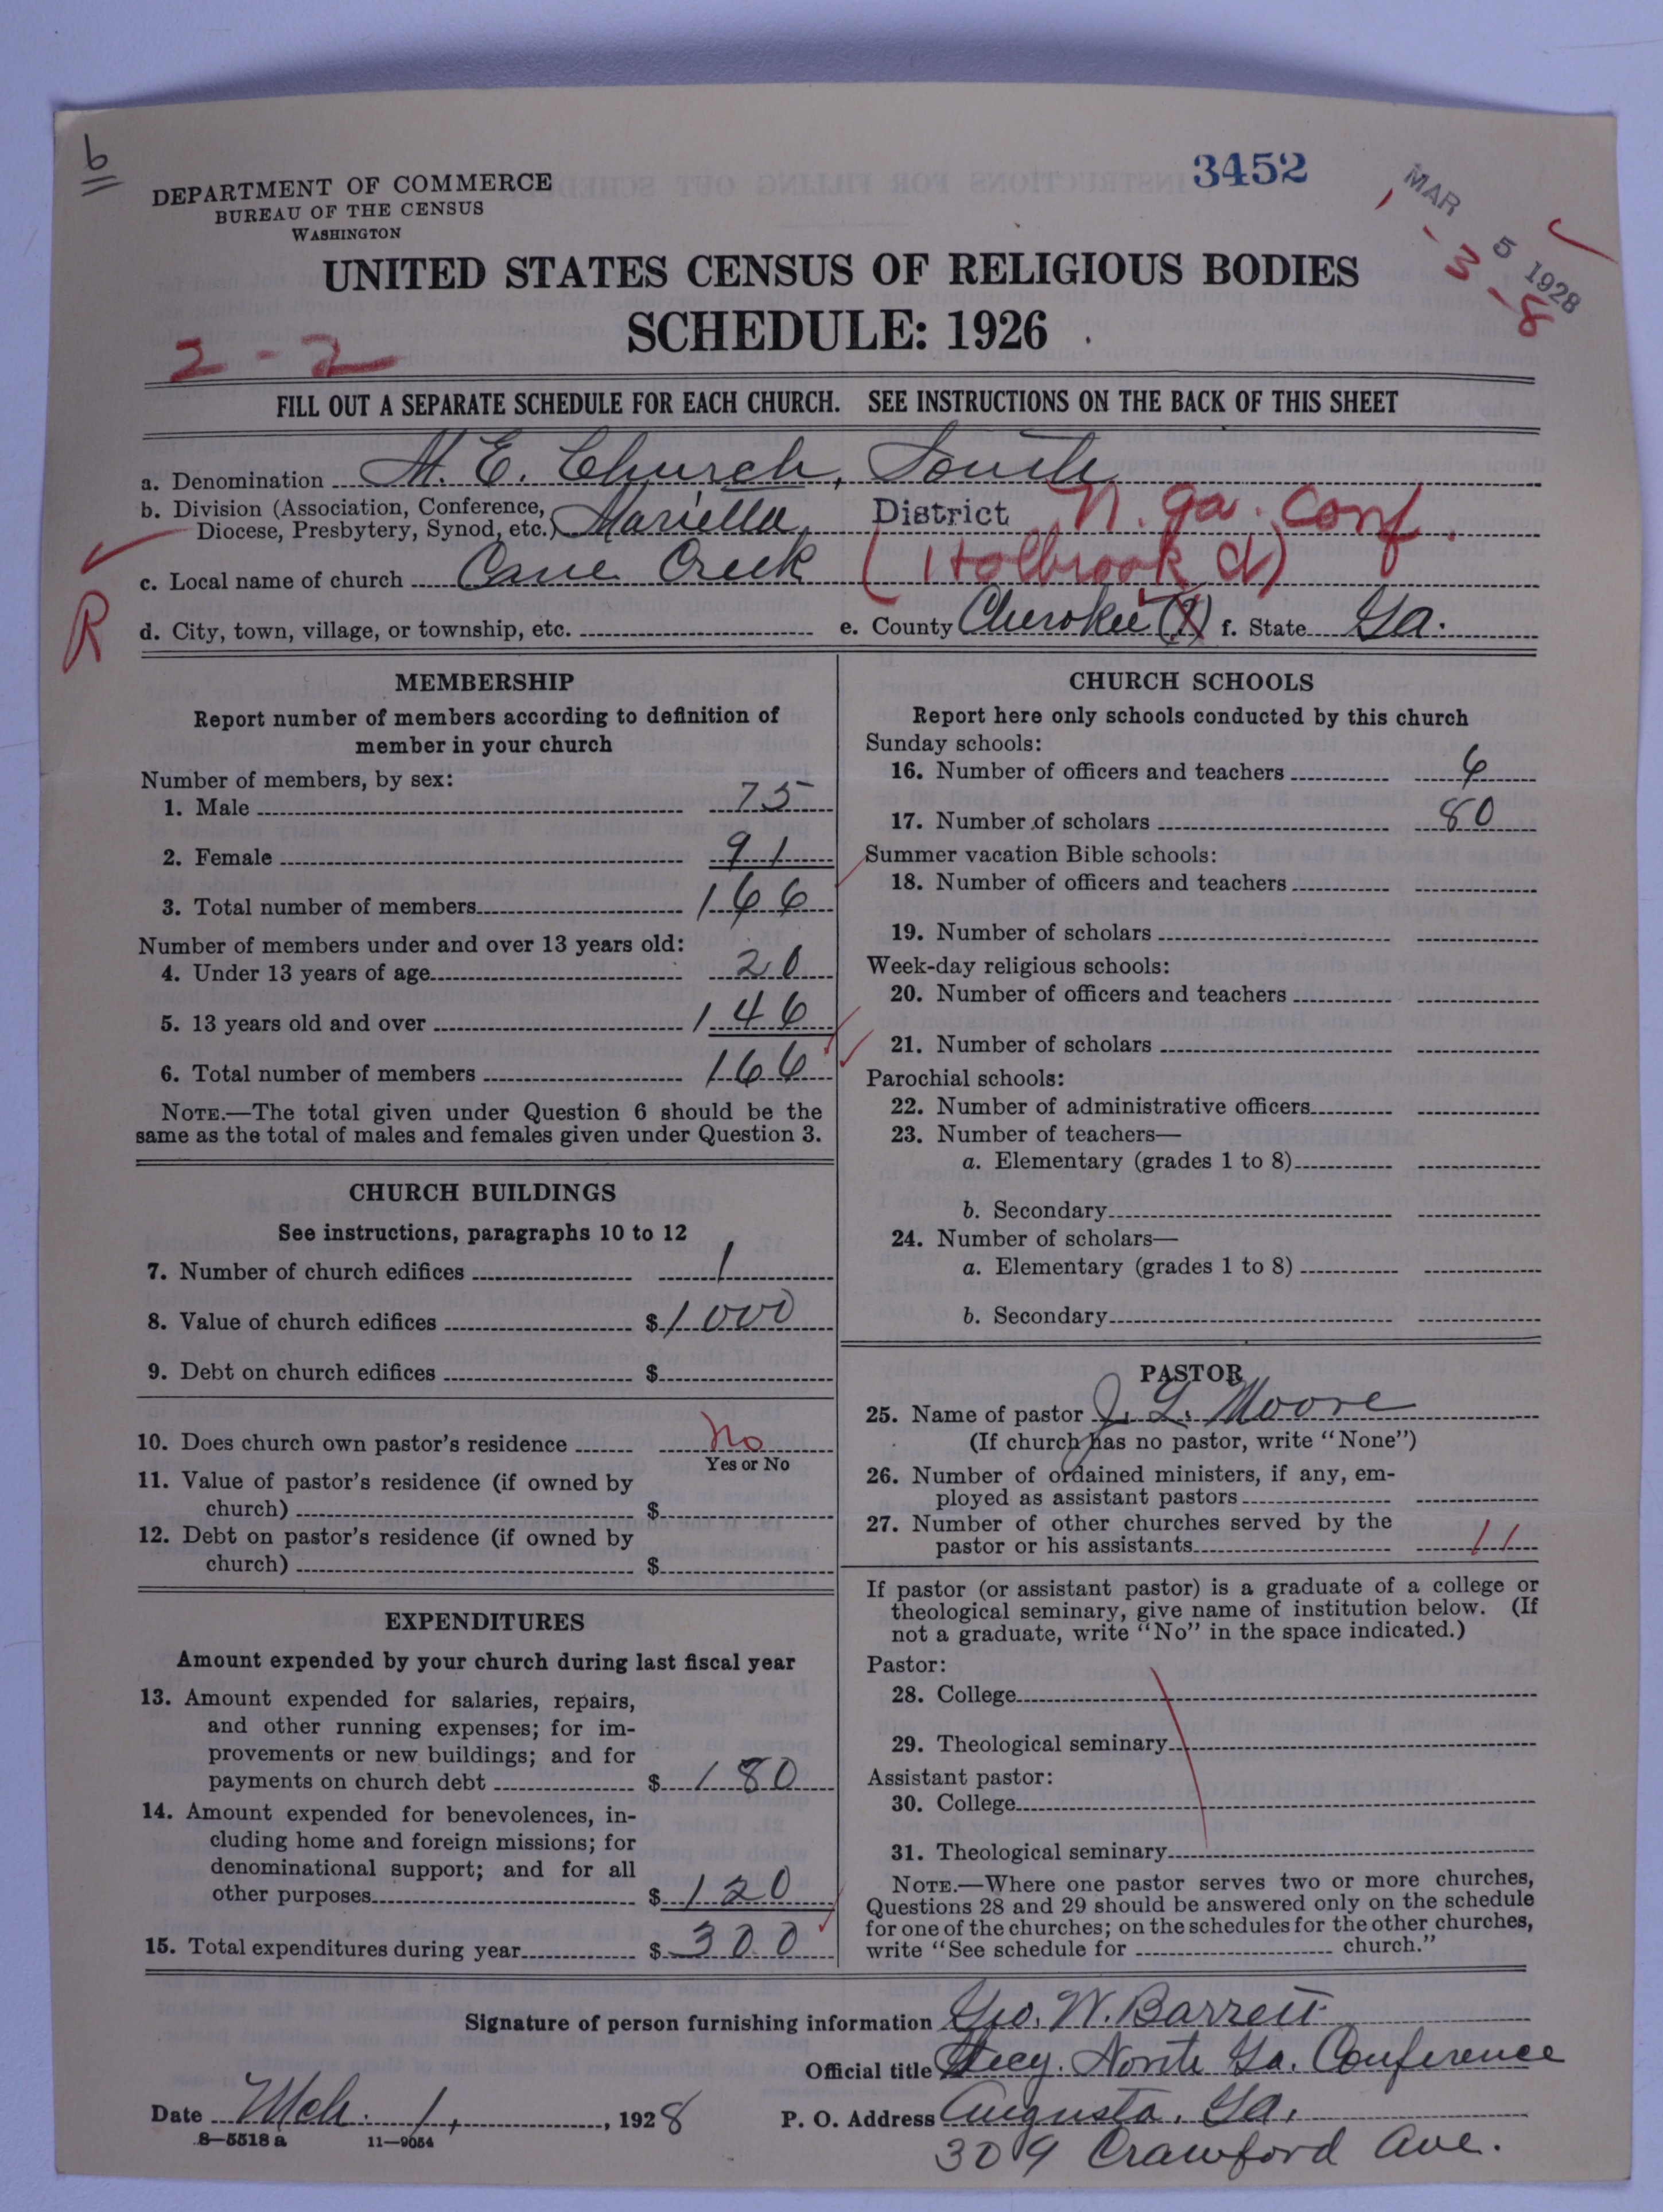 b
3452
MAR 5 1928
3-8
DEPARTMENT OF COMMERCE
BUREAU OF THE CENSUS
WASHINGTON
UNITED STATES CENSUS OF RELIGIOUS BODIES
SCHEDULE: 1926
2-2
FILL OUT A SEPARATE SCHEDULE FOR EACH CHURCH. SEE INSTRUCTIONS ON THE BACK OF THIS SHEET
a. Denomination M. E. Church, South
b. Division (Association, Conference,
Diocese, Presbytery, Synod, etc.) Marietta District N. Ga. Conf.
c. Local name of church Cane Creek (Holbrook d)
R
d. City, town, village, or township, etc. e. County Cherokee (?) f. State Ga.
MEMBERSHIP
Report number of members according to definition of
member in your church
Number of members, by sex:
1. Male 75
2. Female 91
3. Total number of members 166
Number of members under and over 13 years old:
4. Under 13 years of age 20
5. 13 years old and over 146
6. Total number of members 166
NOTE.—The total given under Question 6 should be the
same as the total of males and females given under Question 3.
CHURCH BUILDINGS
See instructions, paragraphs 10 to 12
7. Number of church edifices 1
8. Value of church edifices $ 1000
9. Debt on church edifices $
10. Does church own pastor's residence No
Yes or No
11. Value of pastor's residence (if owned by
church) $
12. Debt on pastor's residence (if owned by
church) $
EXPENDITURES
Amount expended by your church during last fiscal year
13. Amount expended for salaries, repairs,
and other running expenses; for im-
provements or new buildings; and for
payments on church debt $ 180
14. Amount expended for benevolences, in-
cluding home and foreign missions; for
denominational support; and for all
other purposes $ 120
15. Total expenditures during year $ 300
CHURCH SCHOOLS
Report here only schools conducted by this church
Sunday schools:
16. Number of officers and teachers 6
17. Number of scholars 80
Summer vacation Bible schools:
18. Number of officers and teachers
19. Number of scholars
Week-day religious schools:
20. Number of officers and teachers
21. Number of scholars
Parochial schools:
22. Number of administrative officers
23. Number of teachers—
a. Elementary (grades 1 to 8)
b. Secondary
24. Number of scholars—
a. Elementary (grades 1 to 8)
b. Secondary
PASTOR
25. Name of pastor J. L. Moore
(If church has no pastor, write "None")
26. Number of ordained ministers, if any, em-
ployed as assistant pastors
27. Number of other churches served by the
pastor or his assistants 11
If pastor (or assistant pastor) is a graduate of a college or
theological seminary, give name of institution below. (If
not a graduate, write "No" in the space indicated.)
Pastor:
28. College
29. Theological seminary
Assistant pastor:
30. College
31. Theological seminary
NOTE.—Where one pastor serves two or more churches,
Questions 28 and 29 should be answered only on the schedule
for one of the churches; on the schedules for the other churches,
write "See schedule for church."
Signature of person furnishing information Geo. W. Barrett
Official title Secy. North Ga. Conference
Date Mch. 1, 1928 P. O. Address Augusta, Ga.
8—5518 a 11—9054
309 Crawford Ave.